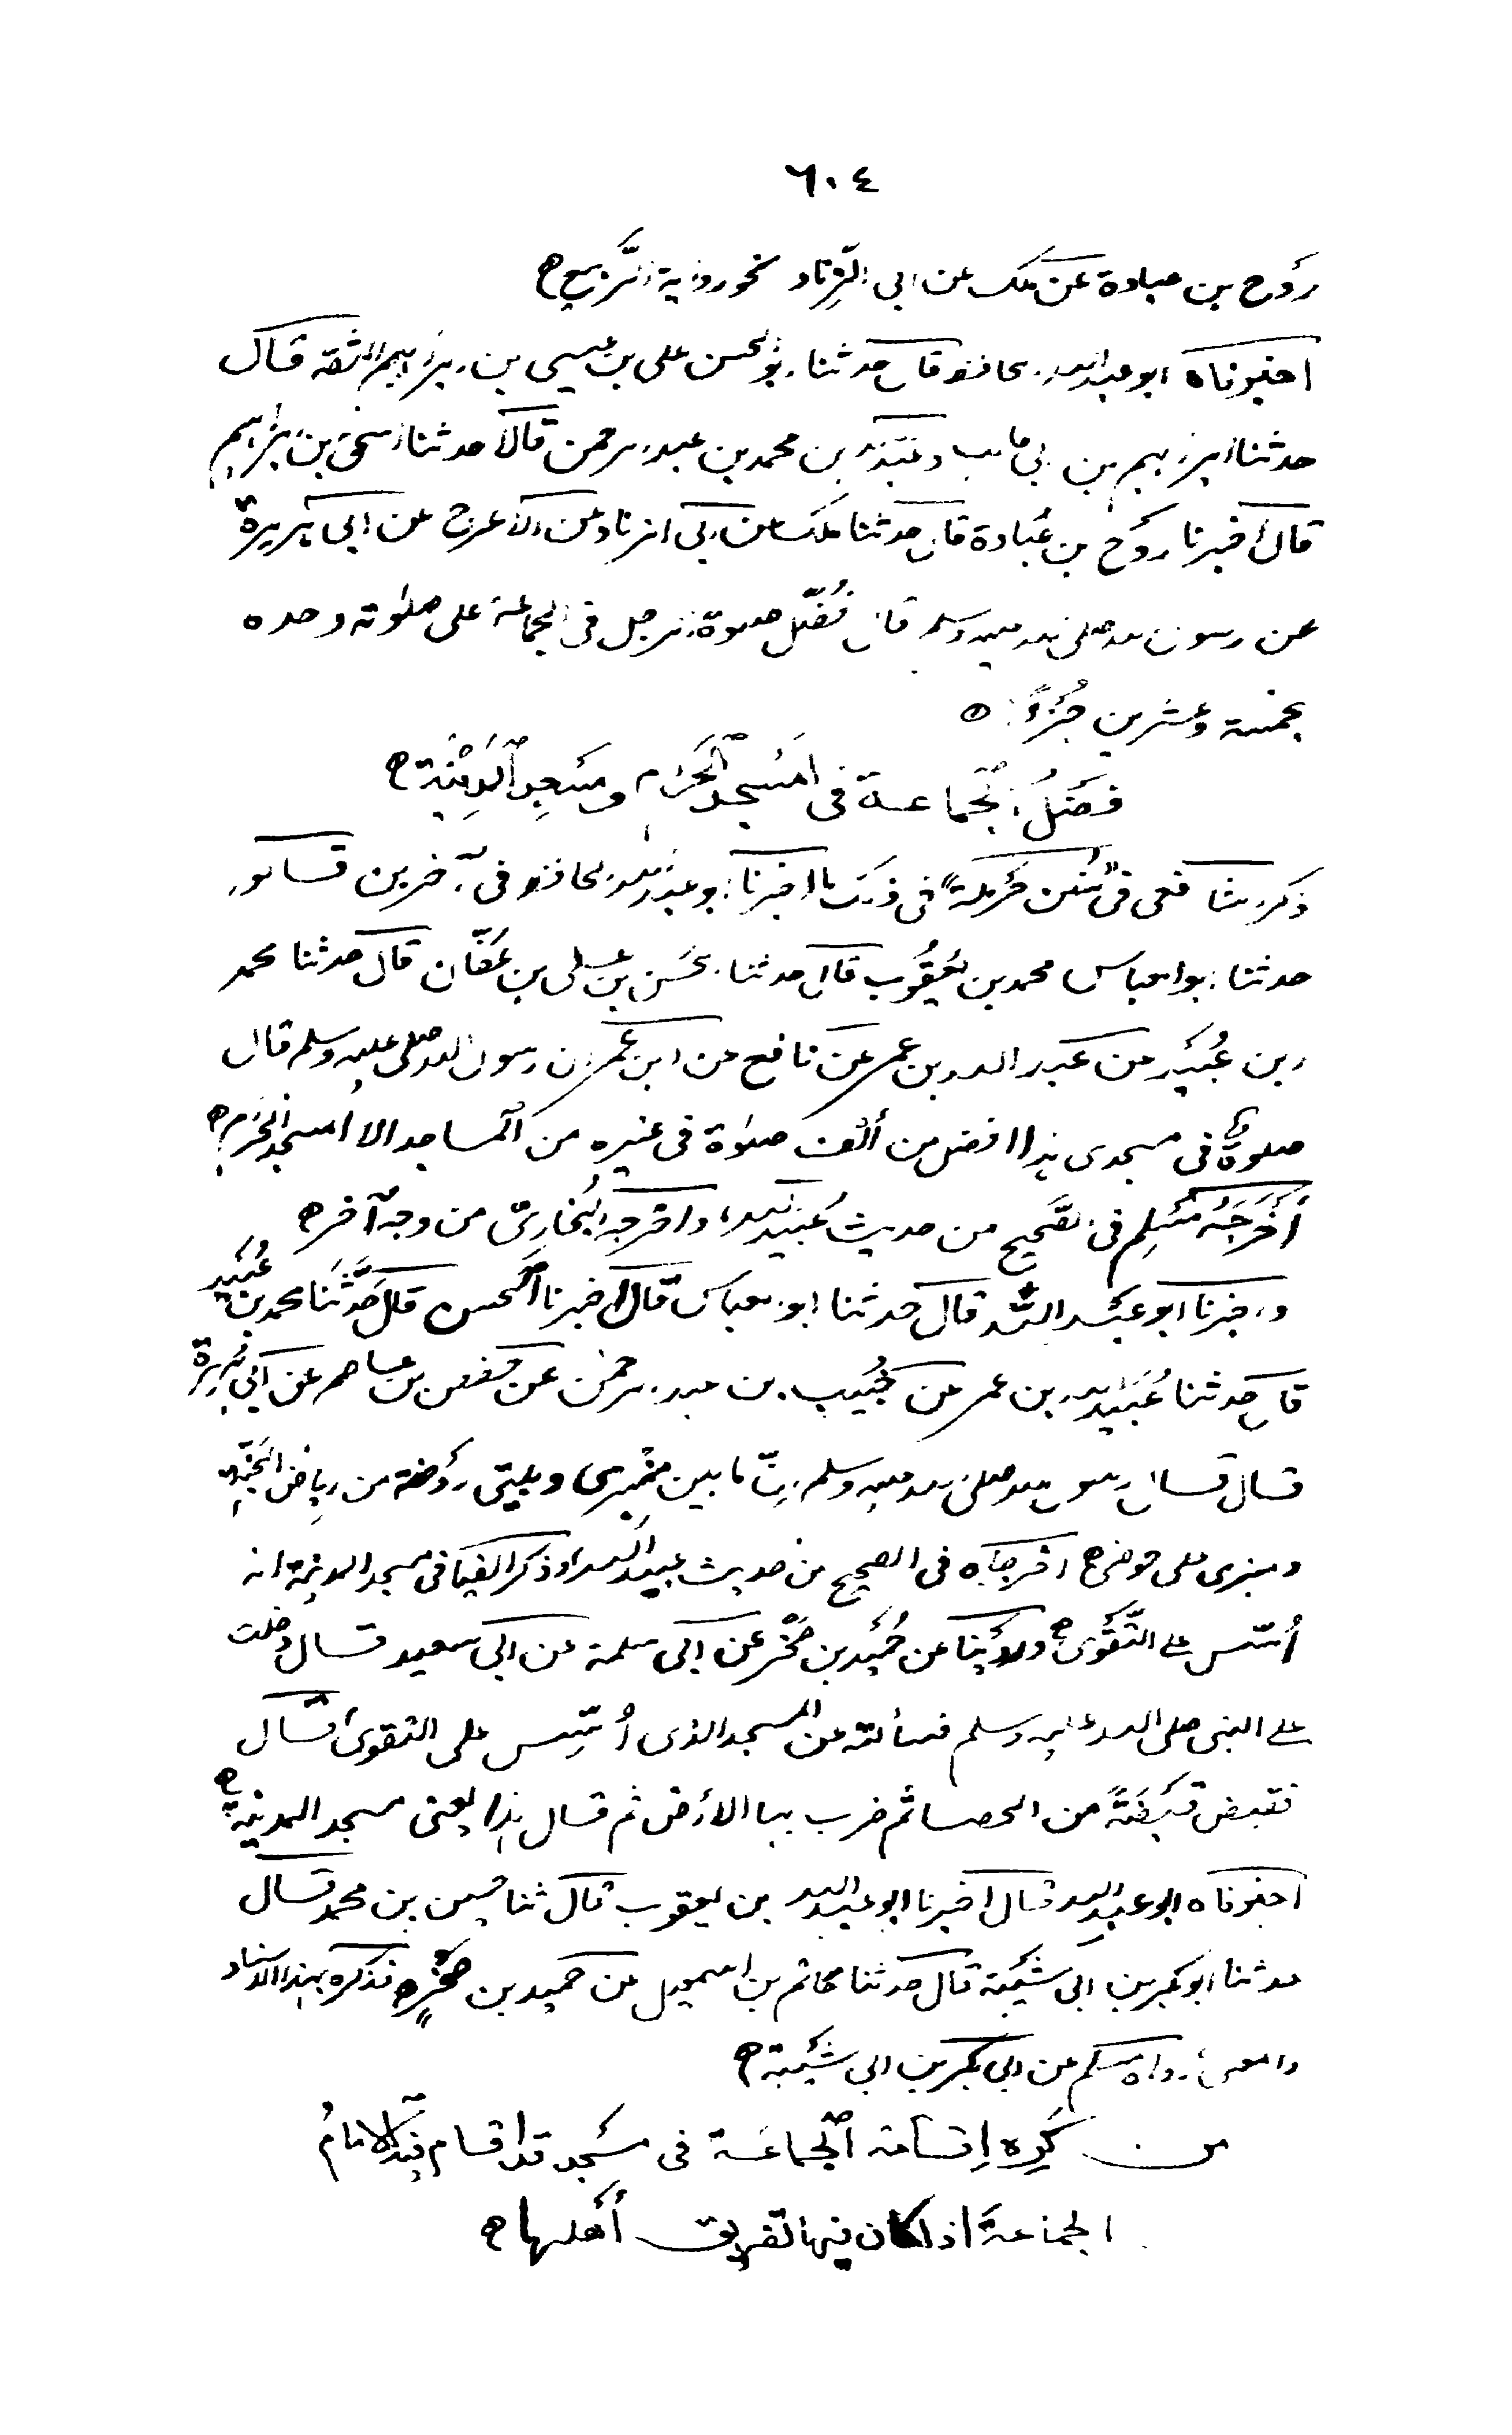 ٦٠٤
روح بن عبادة عن ملك عن ابي الزناد نحو رواية الربيع ه
اخبرناه ابو عبدالله الحافظ قال حدثنا ابوالحسن على بن عيسى بن ابراهيم الثقة قال
حدثنا ابراهيم بن ابي طالب وعبدالله بن محمد بن عبدالرحمن قالا حدثنا اسحق بن ابراهيم
قال اخبرنا روح بن عُبادة قال حدثنا ملك عن ابى الزناد عن الاعرج عن ابى هريرة
عن رسول الله صلى الله عليه وسلم قال فُضّل صلوة الرجل فى الجماعة على صلوته وحده
بخمسة وعشرين جُزْءًا ه
فضل الجماعة فى المسجد الحرام ومسجد المدينة ه
ذكر الشافعى فى سُنن حَرملة فى ذلك ما اخبرنا ابو عبدالله الحافظ فى آخرين قالوا
حدثنا ابوالعباس محمد بن يعقوب قال حدثنا الحسن بن على بن عفّان قال حدثنا محمد
بن عُبيد عن عبيد الله بن عمر عن نافع عن ابن عمر ان رسول الله صلى عليه وسلم قال
صلوة فى مسجدى هذا افضل من ألف صلوة فى غيره من المساجد الا المسجد الحرام ه
أخرجه مسلم فى الصحيح من حديث عُبيدالله، واخرجه البُخارىّ من وجه آخر ه
واخبرنا ابو عبد الله قال حدثنا ابوالعباس قال اخبرنا الحسن قال حدّثنا محمد بن عُبيد
قال حدثنا عُبيدالله بن عمر عن خُبيب بن عبدالرحمن عن حفص بن عاصم عن ابى هُريرة
قال قال رسول الله صلى الله عليه وسلم انّ ما بين منبرى وبيتى روضة من رياض الجنّة
ومنبرى على حوضى ه اخرجاه فى الصحيح من حديث عبيدالله وذكر ايضا فى مسجد المدينة انه
أُسّس على التّقوى ه وروينا عن حُميد بن صخر عن ابى سلمة عن ابى سعيد قال دخلت
على النبى صلى الله عليه وسلم فسألته عن المسجد الذى أُسّس على التقوى قال
فقبض قبضةً من الحصا ثم ضرب بها الأرض ثم قال هذا يعنى مسجد المدينة ه
اخبرناه ابو عبدالله قال اخبرنا ابو عبدالله بن يعقوب قال ثنا حسين بن محمد قال
حدثنا ابو بكر بن ابى شيبة قال حدثنا حاتم بن اسمعيل عن حميد بن صخر ه فذكره بهذا الاسناد
والمعنى رواه مسلم عن ابى بكر بن ابى شيبة ه
من كره اقامة الجماعة فى مسجد قد اقام فيه الامام
الجماعة اذا كان فيها تفريق أهلها ه